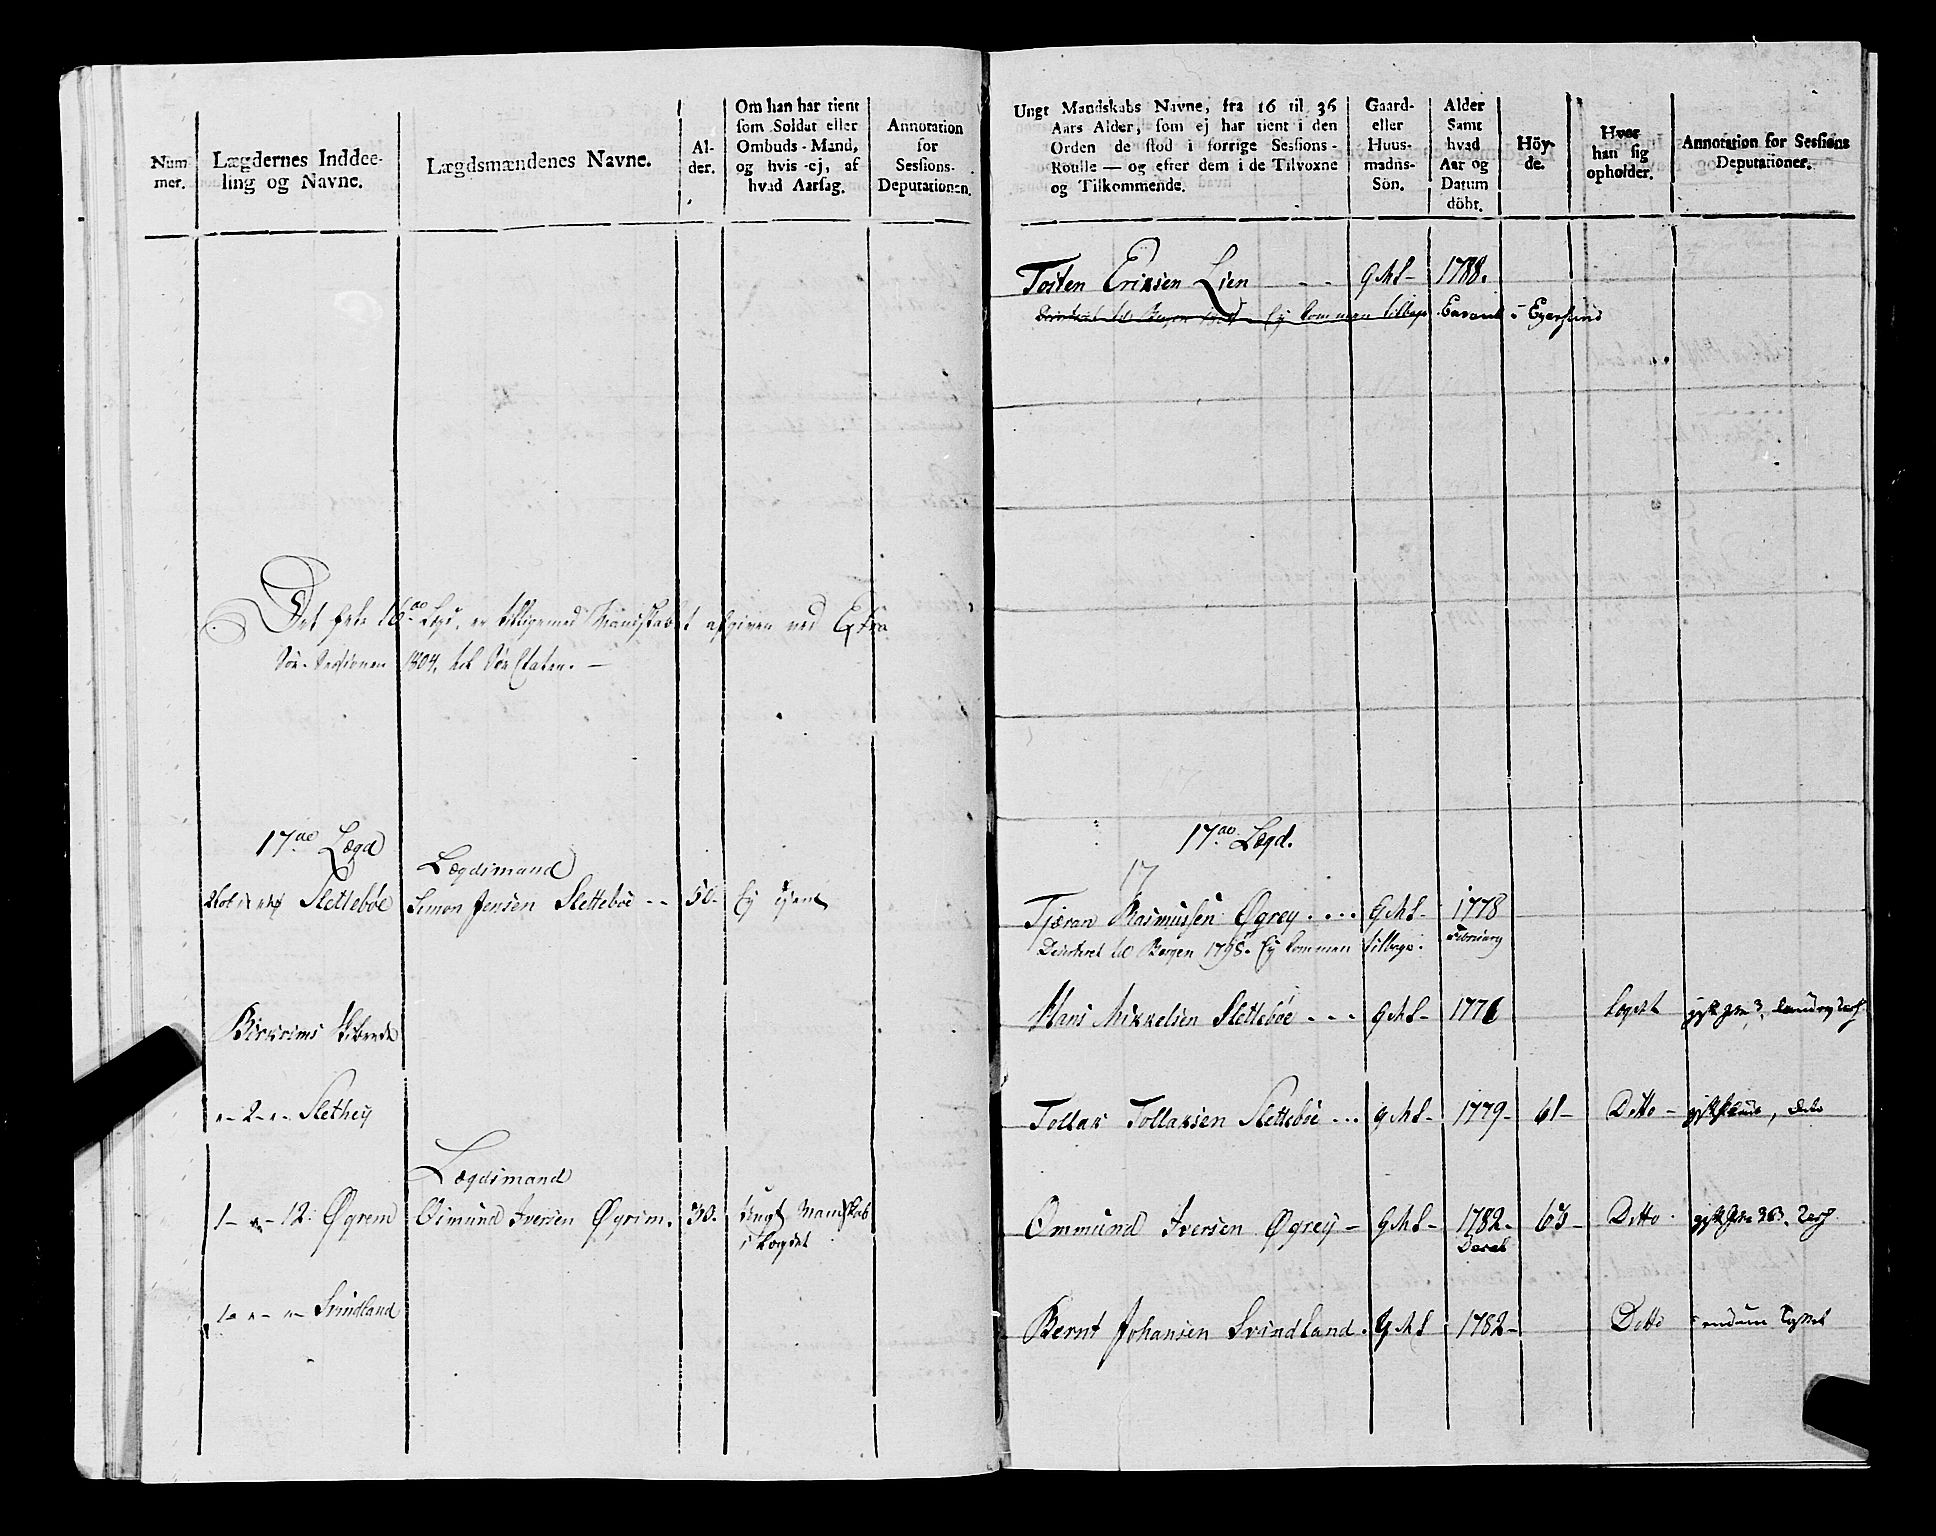 Num
mer.
Lægdernes Inddee-
ling og Navne.
Lægdsmændenes Navne.
Al-
der.
Om han har tient
som Soldat eller
Ombuds-Mand,
og hvis-ej, af
hvad Aarsag.
Annotation
for
Sessions-
Deputationen.
Det hele 16de Lægd, er tilligemed Mandskabet afgiven ved Extra
Søe-Sessionen 1804, til Søe Etaten. —
17de Lægd
Lægdsmand
Slettebøe Simon Jensen Slettebøe -- 50. Ey tient
Birkrims
„- 2 -„- Slethey
Lægdsmand
1- „- 12. Øgrem Osmund Iversen Øgrim. 30. Ungt Mandskab
i Lægdet
1- „- „- Svindland
Ungt Mandskabs Navne, fra 16 til 36
Aars Alder, som ej har tient i den
Orden de stod i forrige Sessions-
Roulle — og efter dem i de Tilvoxne
og Tilkommende.
Gaard-
eller
Huus-
mands-
Sön.
Alder
Samt
hvad
Aar og
Datum
döbt.
Höy-
de.
Hvor
han sig
opholder.
Annotation for Sessions
Deputationer.
Tosten Eriksen Lien - - - G M S - 1788.
Ey kommen tilbage i Egersund
17de Lægd.
17
Tjæran Rasmussen Øgrey .... G M S - 1778
February
Deserteret til Bergen 1798. Ey kommen tilbage.
Hans Mikkelsen Slettebøe - - - G M S - 1776 Lægdet
Tollak Tollaksen Slettebøe ... G M S - 1779 - 61 - Ditto -
Ommund Iversen Øgrey - G M S - 1782. 63 - Ditto.
Bernt Johansen Svindland. G M S 1782 - Ditto